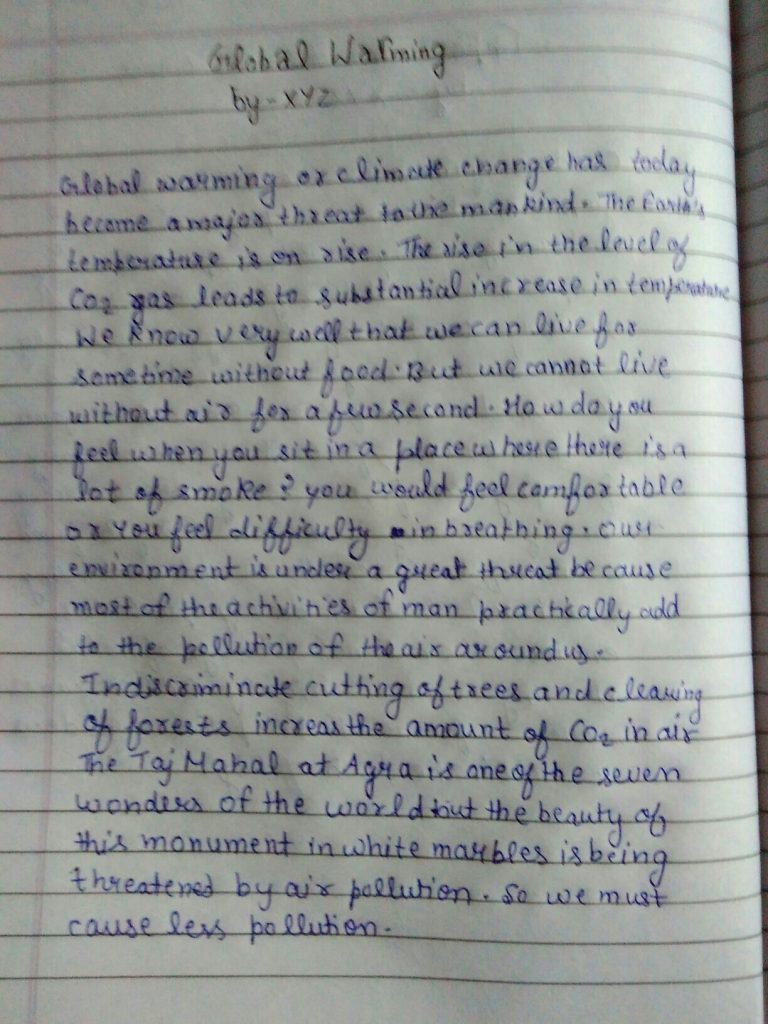 Global Warming
by - XYZ
Global warming or climate change has today
become a major threat to the mankind. The Earth's
temperature is on rise. The rise in the level of
CO2 gas leads to substantial increase in temperature
We know very well that we can live for
sometime without food. But we cannot live
without air for a few second. How do you
feel when you sit in a place where there is a
lot of smoke? you would feel comfortable
or you feel difficulty in breathing. Our
environment is under a great threat because
most of the activities of man practically add
to the pollution of the air around us.
Indiscriminate cutting of trees and clearing
of forests increas the amount of CO2 in air
The Taj Mahal at Agra is one of the seven
wonders of the world but the beauty of
this monument in white marbles is being
threatened by air pollution. So we must
cause less pollution.